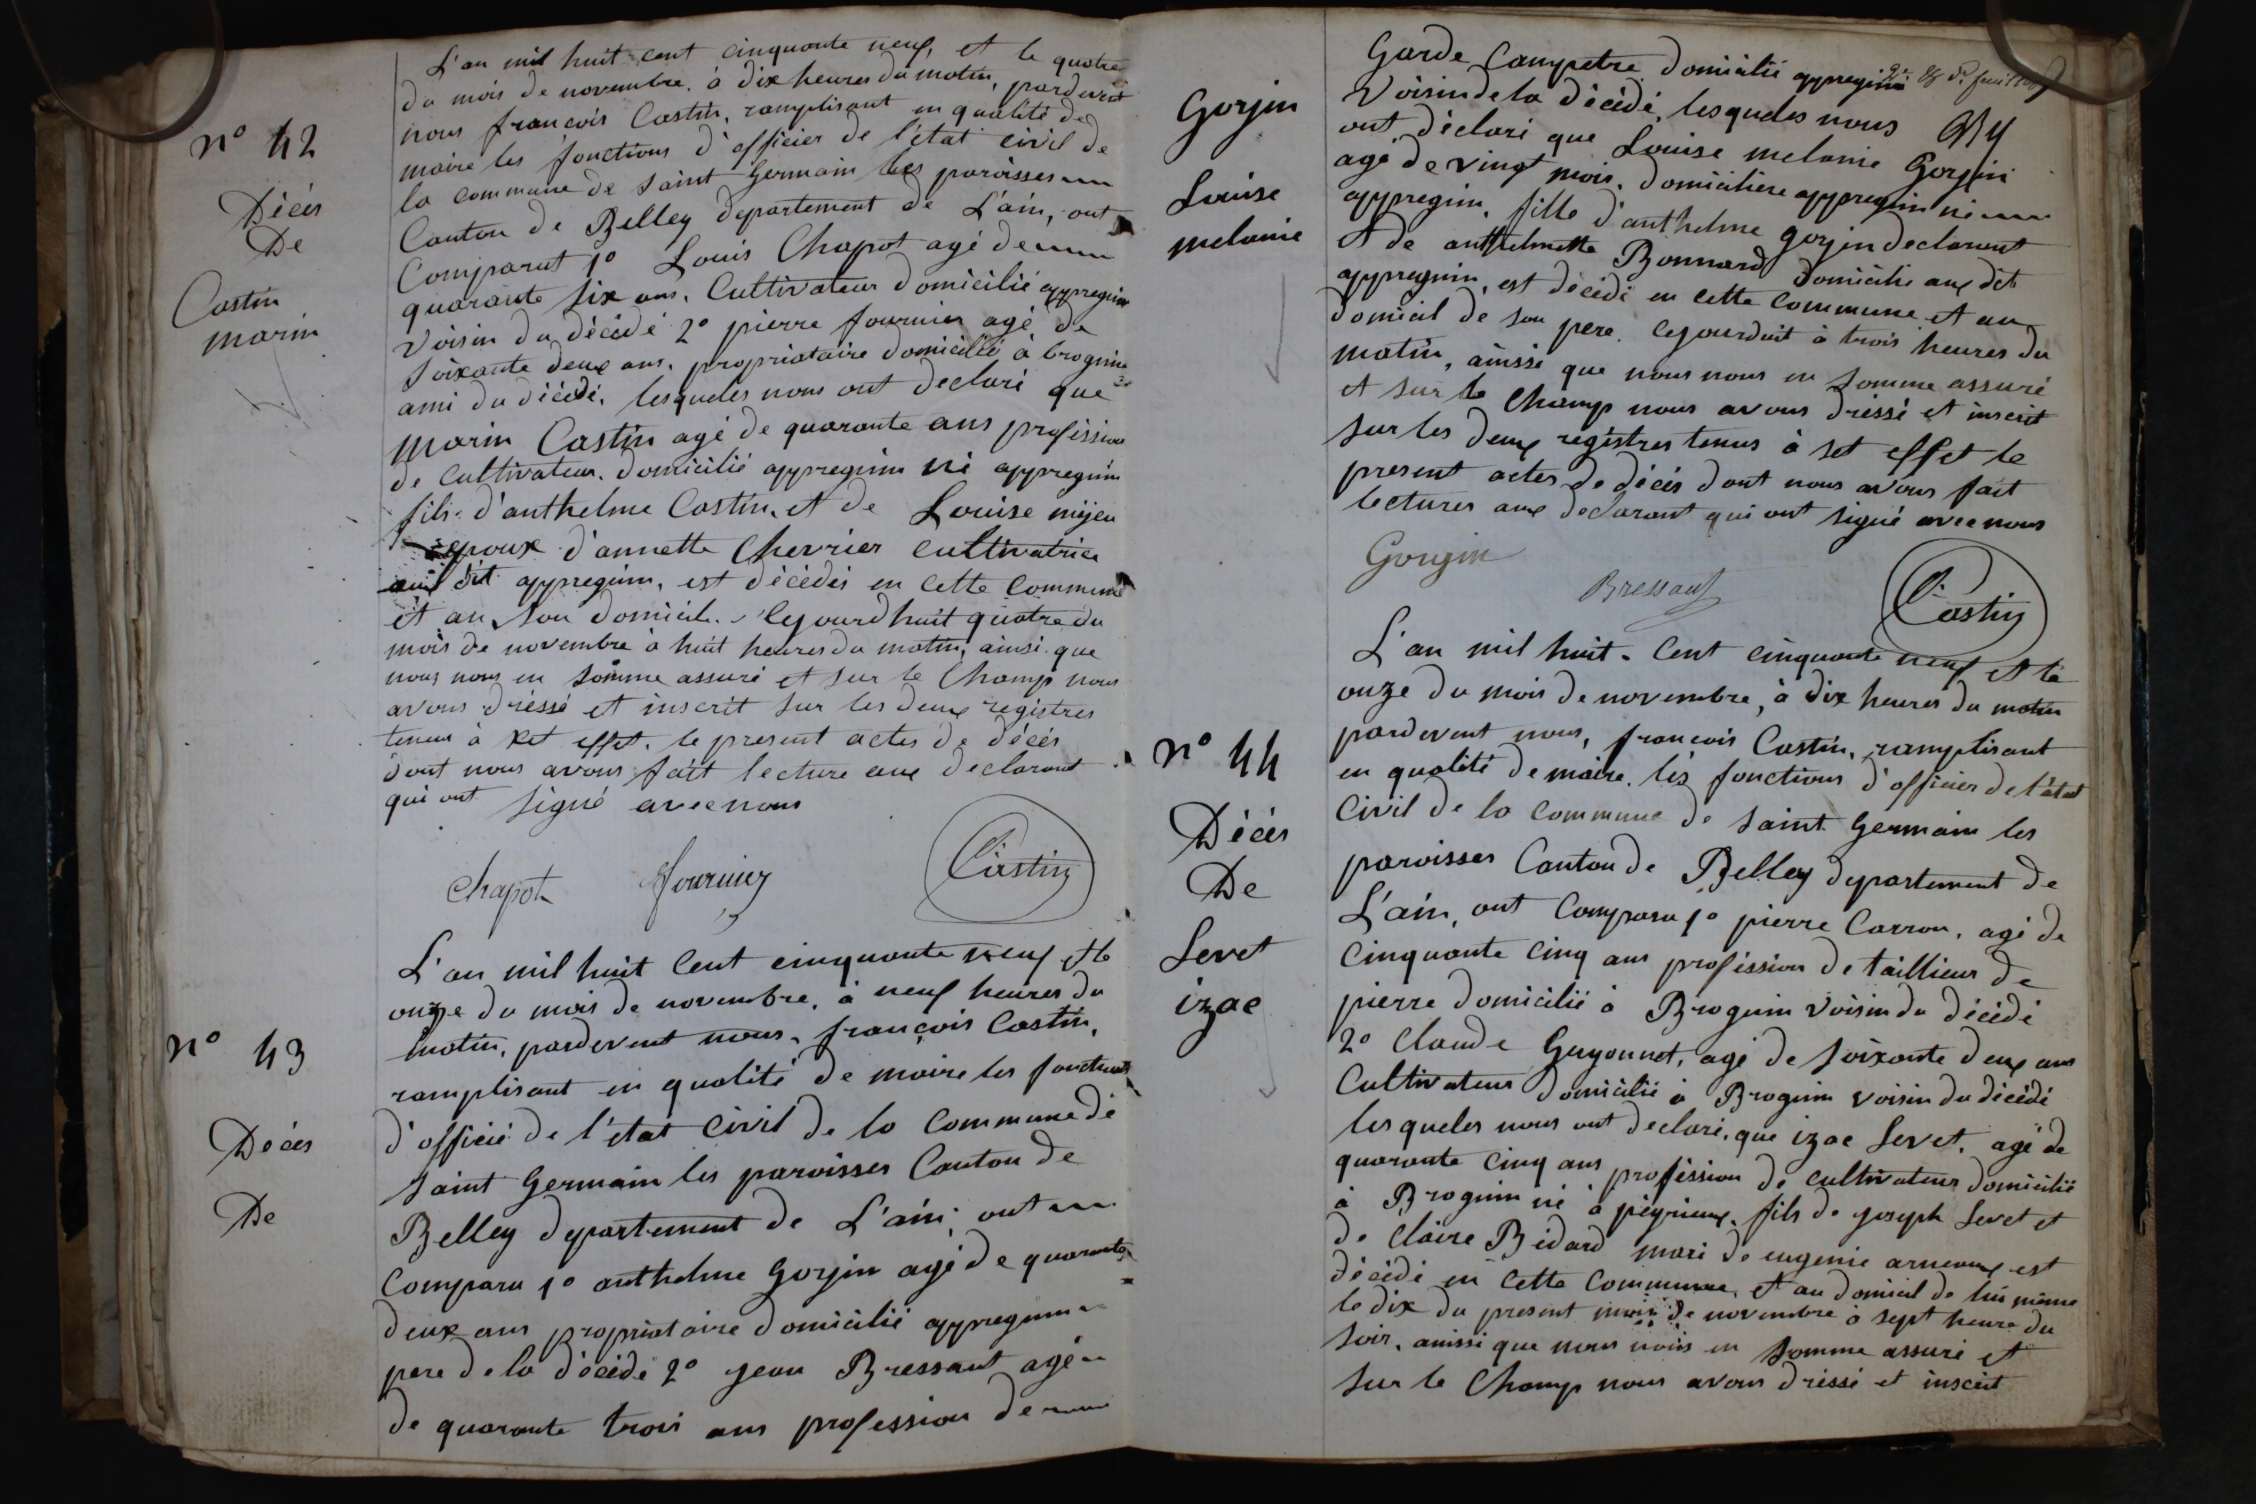 n° 42
Décés
De
Castin
marin
L'an mil huit cent cinquante neuf, et le quatre
du mois de novembre. à dix heures du matin, pardevent
nous françois Castin, ramplisant en qualité de
maire les fonctions d'officier de l'état civil de
la commune de saint Germain les paroisses
Canton de Belley departement de L'ain, ont
Comparut 1° Louis Chapot agé de
quarante six ans, Cultivateur domicilié appregnin
voisin du décédé 2° pierre fournier agé de
soixante deux ans, propriataire domicillié à brognin
ami du décédé, lesqueles nous ont declaré que
marin Castin agé de quarante ans proféssion
de Cultivateur. domicilié appregnin né appregnin
fils d'anthelme Castin, et de Louise mijeu
epoux d'annette Chevrier cultivatrice
aux dit appregnin, est décédés en cette commune
et au son domicile. cejourdhuit quatre du
mois de novembre à huit heures du matin, ainsi que
nous nous en somme assuré et sur le Champ nous
avons dréssé et inscrit sur les deux registres
tenus à set effet. le present actes de décés
dont nous avons fait lecture aux declarant
qui ont signé avec nous
Chapot fournier Castin
n° 43
Décés
De
L'an mil huit Cent cinquante neuf et le
onze du mois de novembre, à neuf heures du
matin, pardevent nous, françois Castin,
ramplisant en qualité de maire les fonctions
d'officié de l'état Civil de la Commune de
saint Germain les paroisses Canton de
Belley departement de L'ain, ont
Comparu 1° anthelme Gorjin agé de quarante
deux ans propriataire domicilié appregnin
pere de la décédé 2° jean Bressaut agé
de quarante trois ans profession de
Gorjin
Louise
melanie
Garde Campetre domicilié appregnin
Voisin de la décédé, lesqueles nous
ont déclaré que Louise melanie Gorjin
agé de vingt mois, domiciliere appregnin né
appregnin, fille d'anthelme gorjin declarant
et de anthelmette Bonnard domicilié aux dit
appregnin, est décédé en cette commune et au
domicil de son pere. cejourduit à trois heures du
matin, ainssi que nous nous en somme assuré
et sur le Champ nous avons dréssé et inscrit
sur les deux registres tenus à set effet le
present actes de décés dont nous avons fait
lectures aux declarant qui ont signé avec nous
Gorgin Bressaut Castin
n° 44
Décés
De
Sevet
izac
L'an mil huit Cent cinquante neuf et le
onze du mois de novembre, à dix heures du matin
pardevent nous, françois Castin, ramplisant
en qualité de maire. lés fonctions d'officier de l'état
Civil de la commune de saint Germain les
paroisses Canton de Belley departement de
L'ain, ont Comparu 1° pierre Carron, agé de
Cinquante Cinq ans proféssion de taillieur de
pierre domicilié à Brognin voisin du décédé
2° Claude Guyonnet, agé de soixante deux ans
Cultivateur domicilié à Brognin voisin du décédé
les queles nous ont declaré, que izac Sevet, agé de
quarante cinq ans proféssion de cultivateur domicilié
à Brognin né à péyrieux. fils de joseph Sevet et
de Claire Bidard mari de eugenie arneoux est
décédé en cette Commune, et au domicil de lui même
le dix du present mois de novembre à sept heure du
soir, ainssi que nous nous en somme assuré et
sur le Champ nous avons dréssé et inscrit